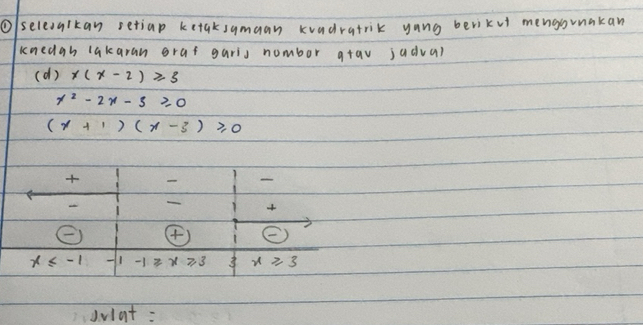 ① selesaikan setiap ketaksamaan kuadratrik yang berikut menggunakan
kaedah lakaran graf garis nombor atau jadual
(d) x(x-2) ≥ 3
x² - 2x - 3 ≥ 0
(x + 1)(x - 3) ≥ 0
+ - -
- - +
- + -
x ≤ -1 -1 -1 ≥ x ≥ 3 3 x ≥ 3
Julat :